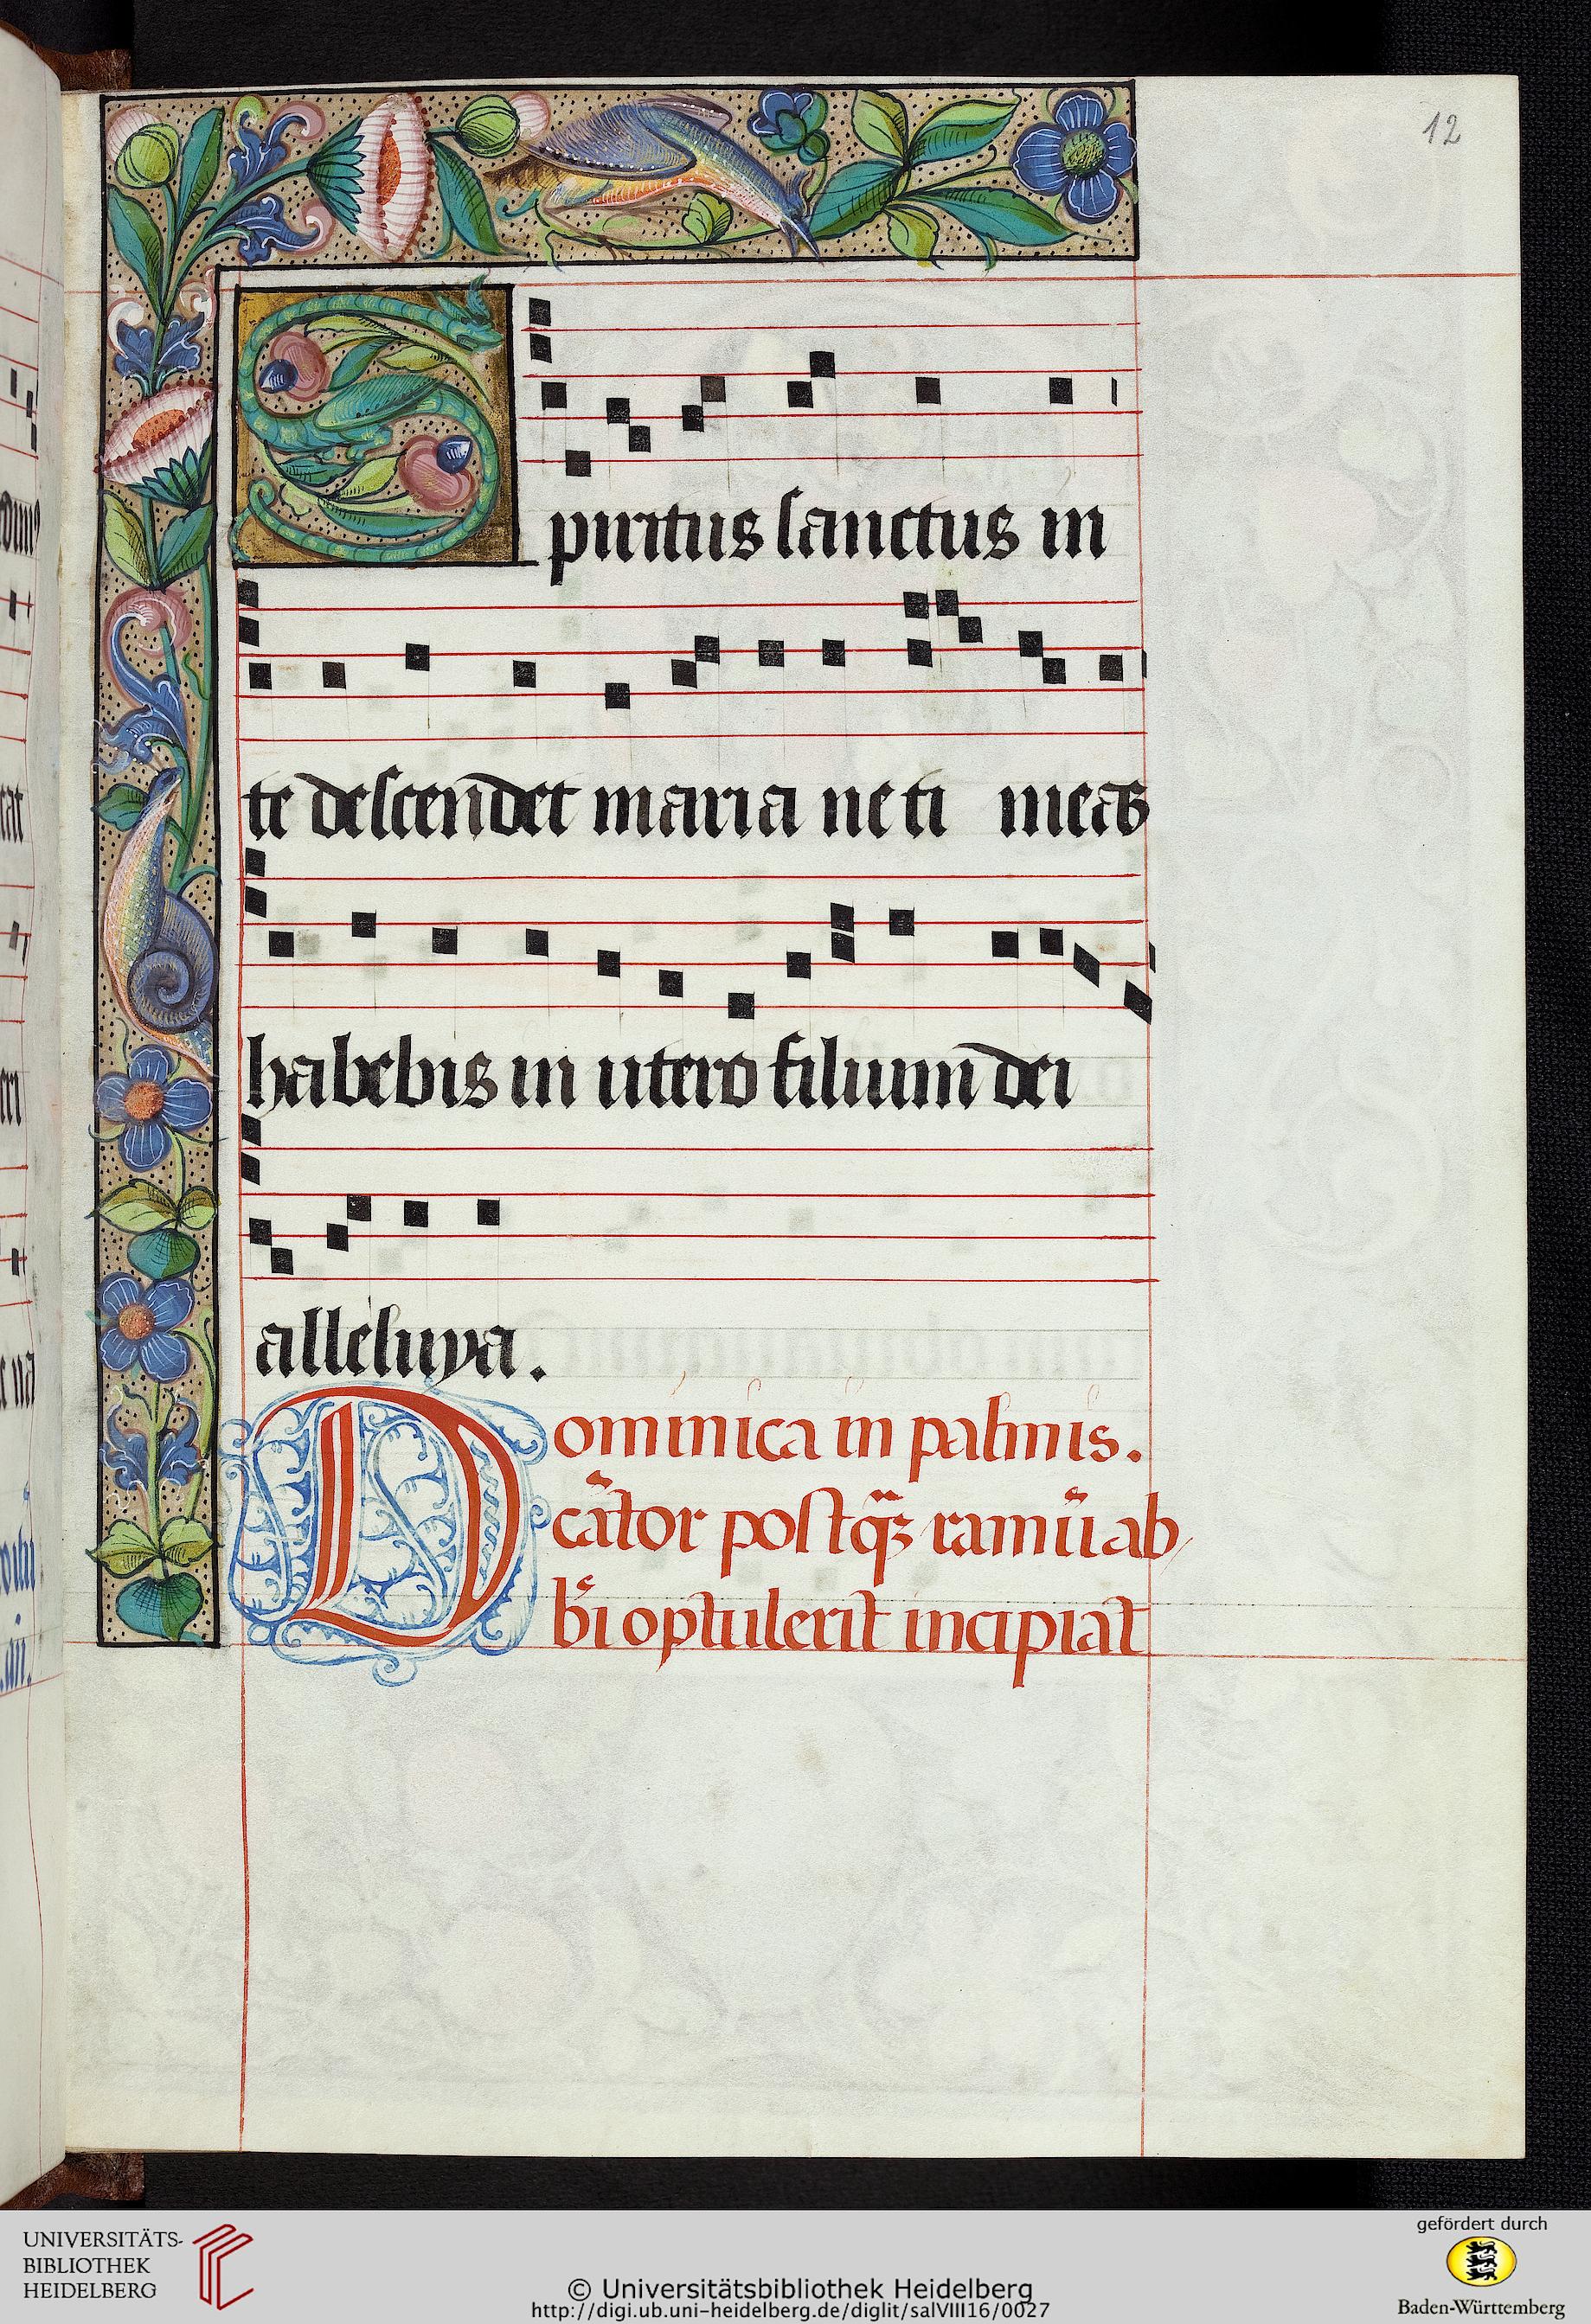 12
Spiritus sanctus in
te descendet maria ne ti meas
habebis in utero filium dei
alleluya.
Dominica in palmis.
cãtor postq̃ȝ ramũ ab
b̃i optulerit incipiat
UNIVERSITÄTS-
BIBLIOTHEK
HEIDELBERG
© Universitätsbibliothek Heidelberg
http://digi.ub.uni-heidelberg.de/diglit/salVIII16/0027
gefördert durch
Baden-Württemberg